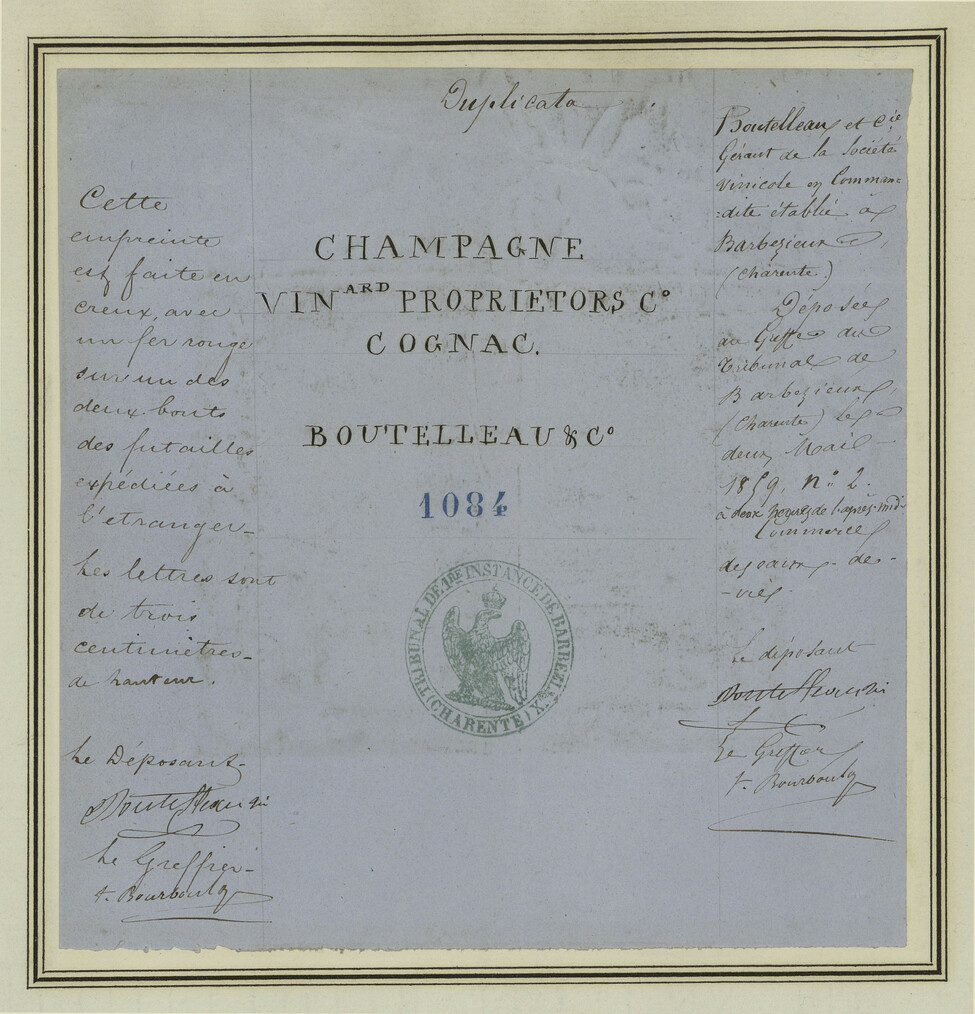 Duplicata
Cette
empreinte
est faite en
creux, avec
un fer rouge
sur un des
deux bouts
des futailles
expédiées à
l'etranger-
Les lettres sont
de trois
centimètres-
de hauteur.
Le Déposant-
Le Greffier-
CHAMPAGNE
VINARD PROPRIETORS Cº
COGNAC.
BOUTELLEAU & Cº
1084
TRIBUNAL DE 1RE INSTANCE DE BARBEZIEUX
(CHARENTE)
Boutelleau et Cie
Gérant de la Société
vinicole en Comman-
-dite établie à
Barbezieux,
(Charente.)
Déposée
au Greffe du
Tribunal de
Barbezieux,
(Charente) le
deux Mai
1859, nº 2.
à deux heures de l'après-midi
Commerce
des eaux-de-
-vie.
Le déposant
Le Greffier